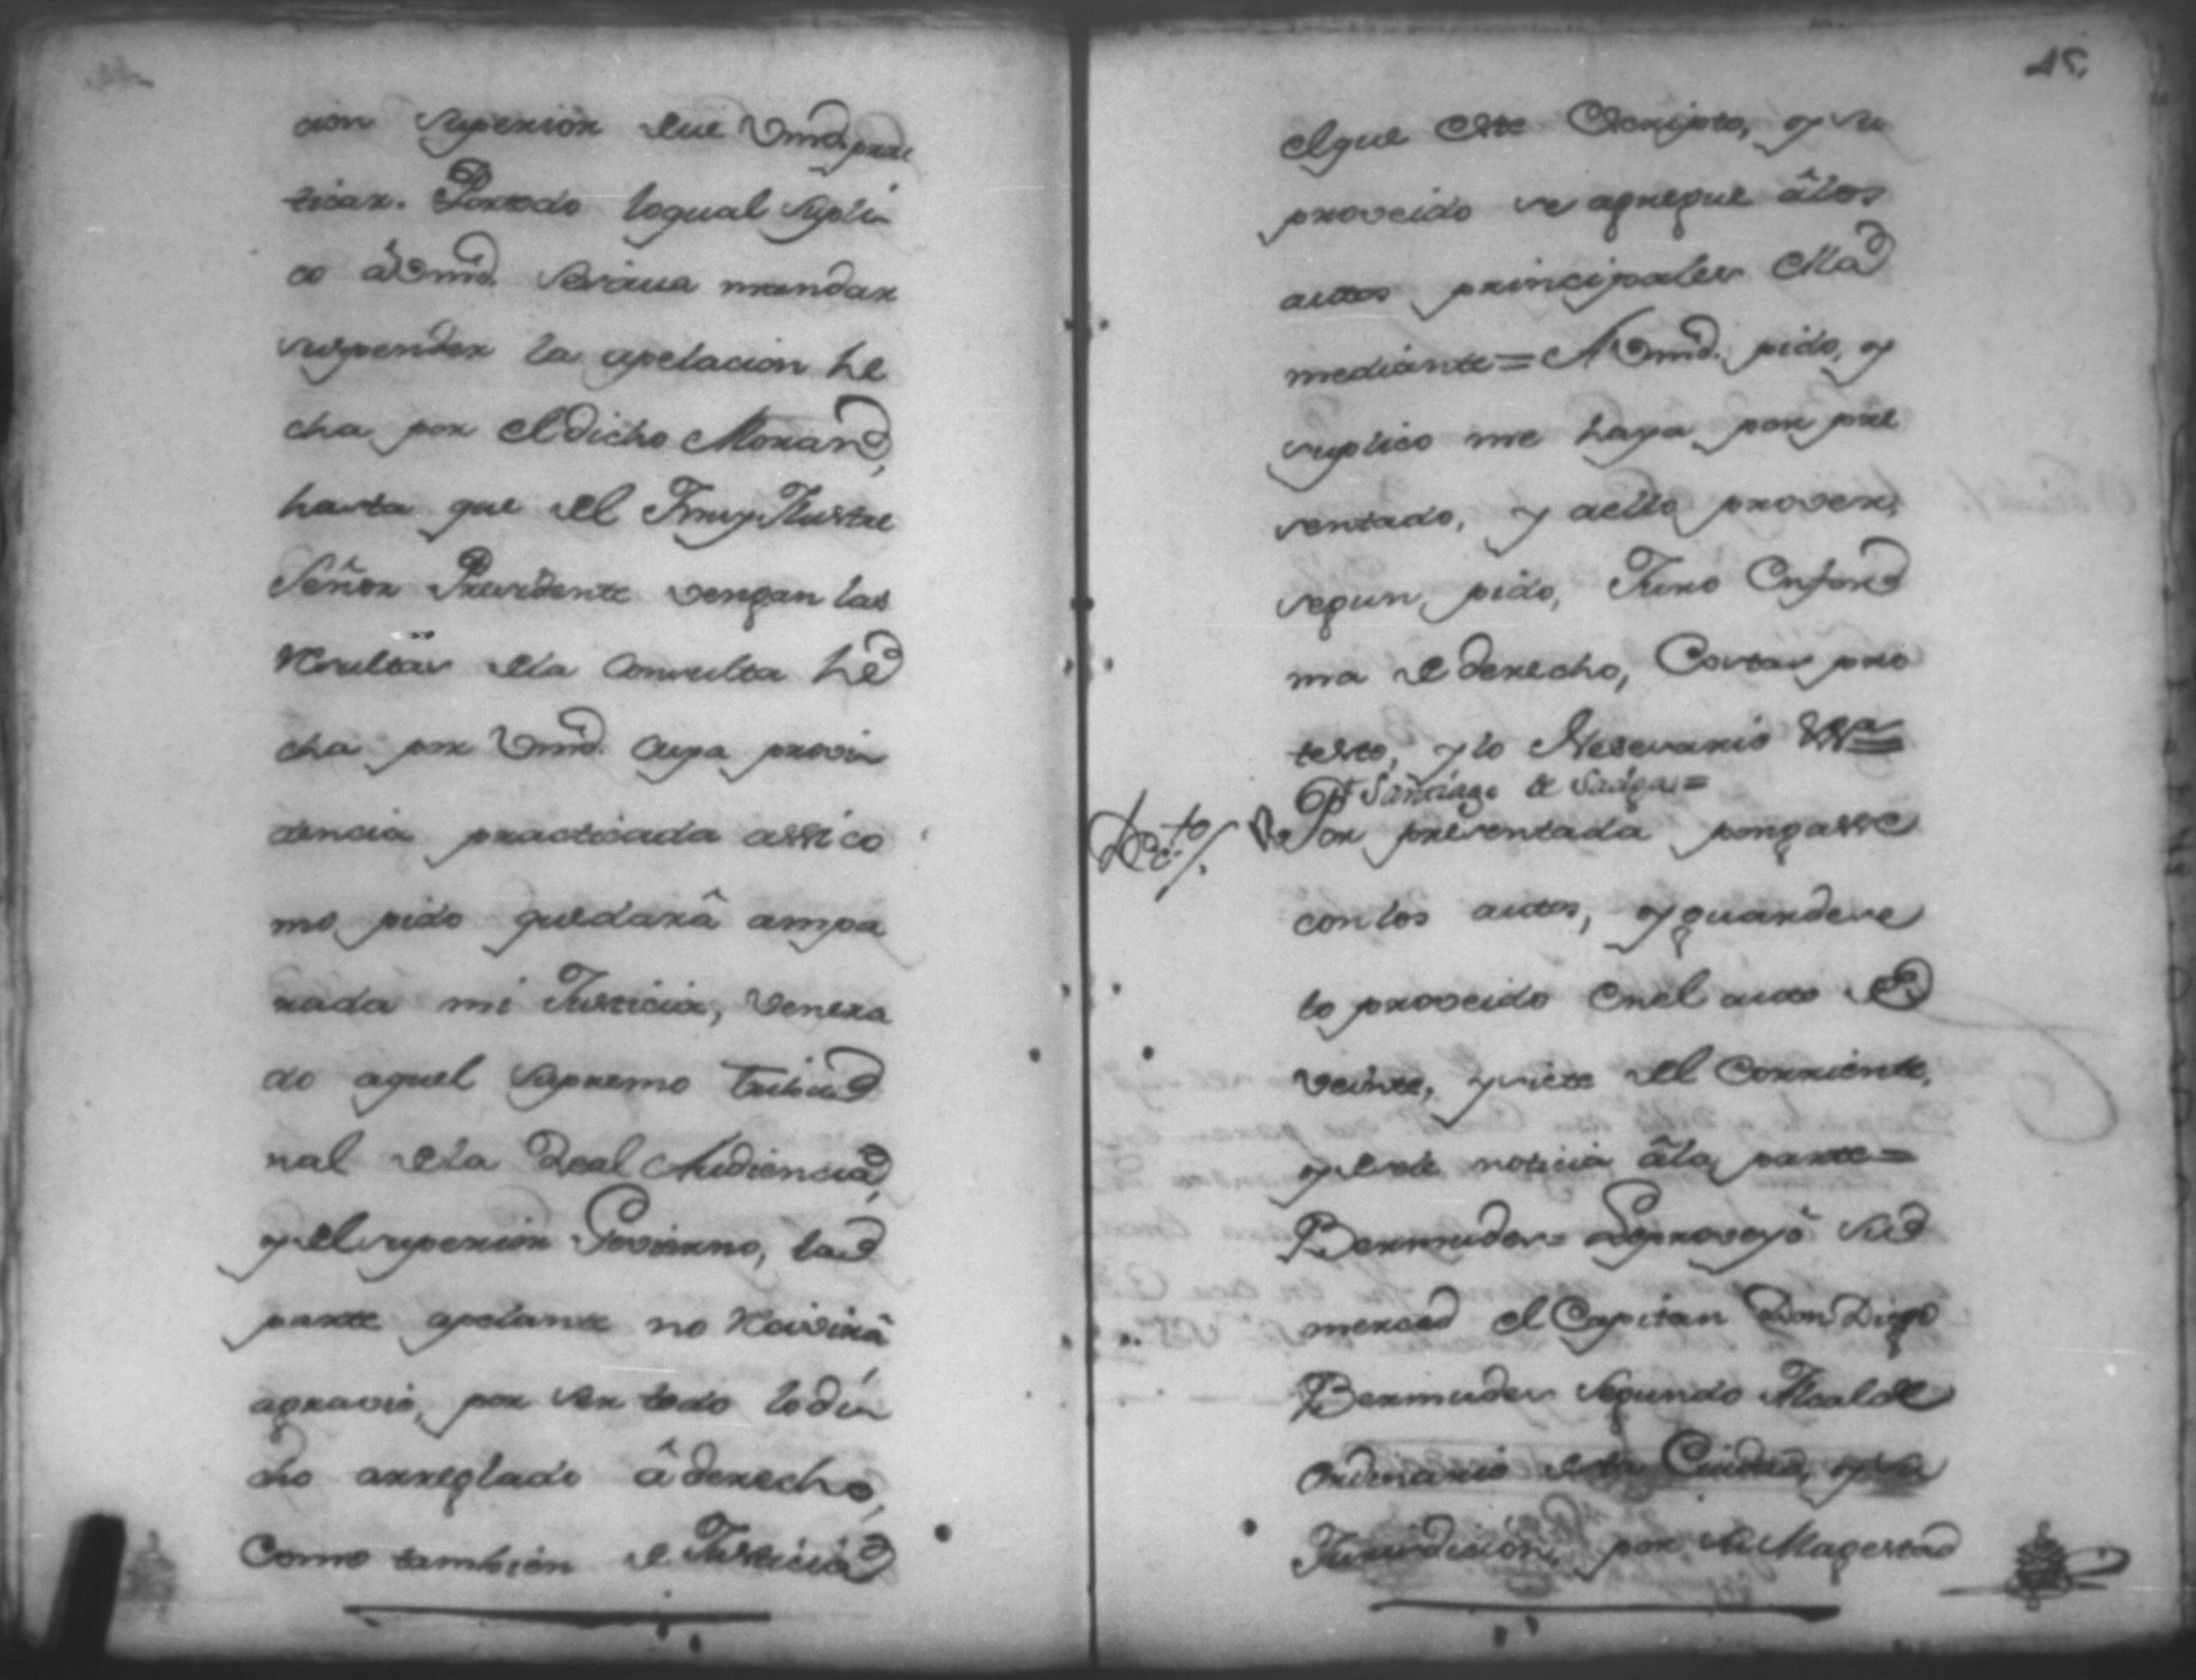 cion superior que Vmd. prac
ticar. Portodo loqual supli
co â Vmd. sesirua mandar
suspender la apelacion he
cha por el dicho Moran,
hasta que del muy Ilustre
Señor Presidente vengan las
resultas dela consulta he
cha por Vmd. cuya provi
dencia practicada assi co
mo pido quedarâ ampa
rada mi Justicia, venera
do aquel supremo tribu
nal dela Real Audiencia,
y el superior Govierno, la
parte apelante no recivirâ
agravio, por ser todo lo di
cho arreglado â derecho,
como tambien de Justicia
45,
elque este escripto, y su
proveido se agregue âlos
autos principales
mediante = A Vmd. pido, y
suplico me haya por pre
sentado, y aello proveer,
segun pido, Juro en for
ma de derecho, Costas pro
testo, y lo Nesesario &ª
Santiago de =
Decto/. Por presentada pongasse
con los autos, y guardese
lo proveido en el auto de
veinte, y siete del corriente,
y sede noticia âla parte =
Bermudes = Loproveyô su
merced el Capitan Don Diego
Bermudes segundo Alcalde
ordinario desta Ciudad, y su
Jurisdicion, por su Magestad